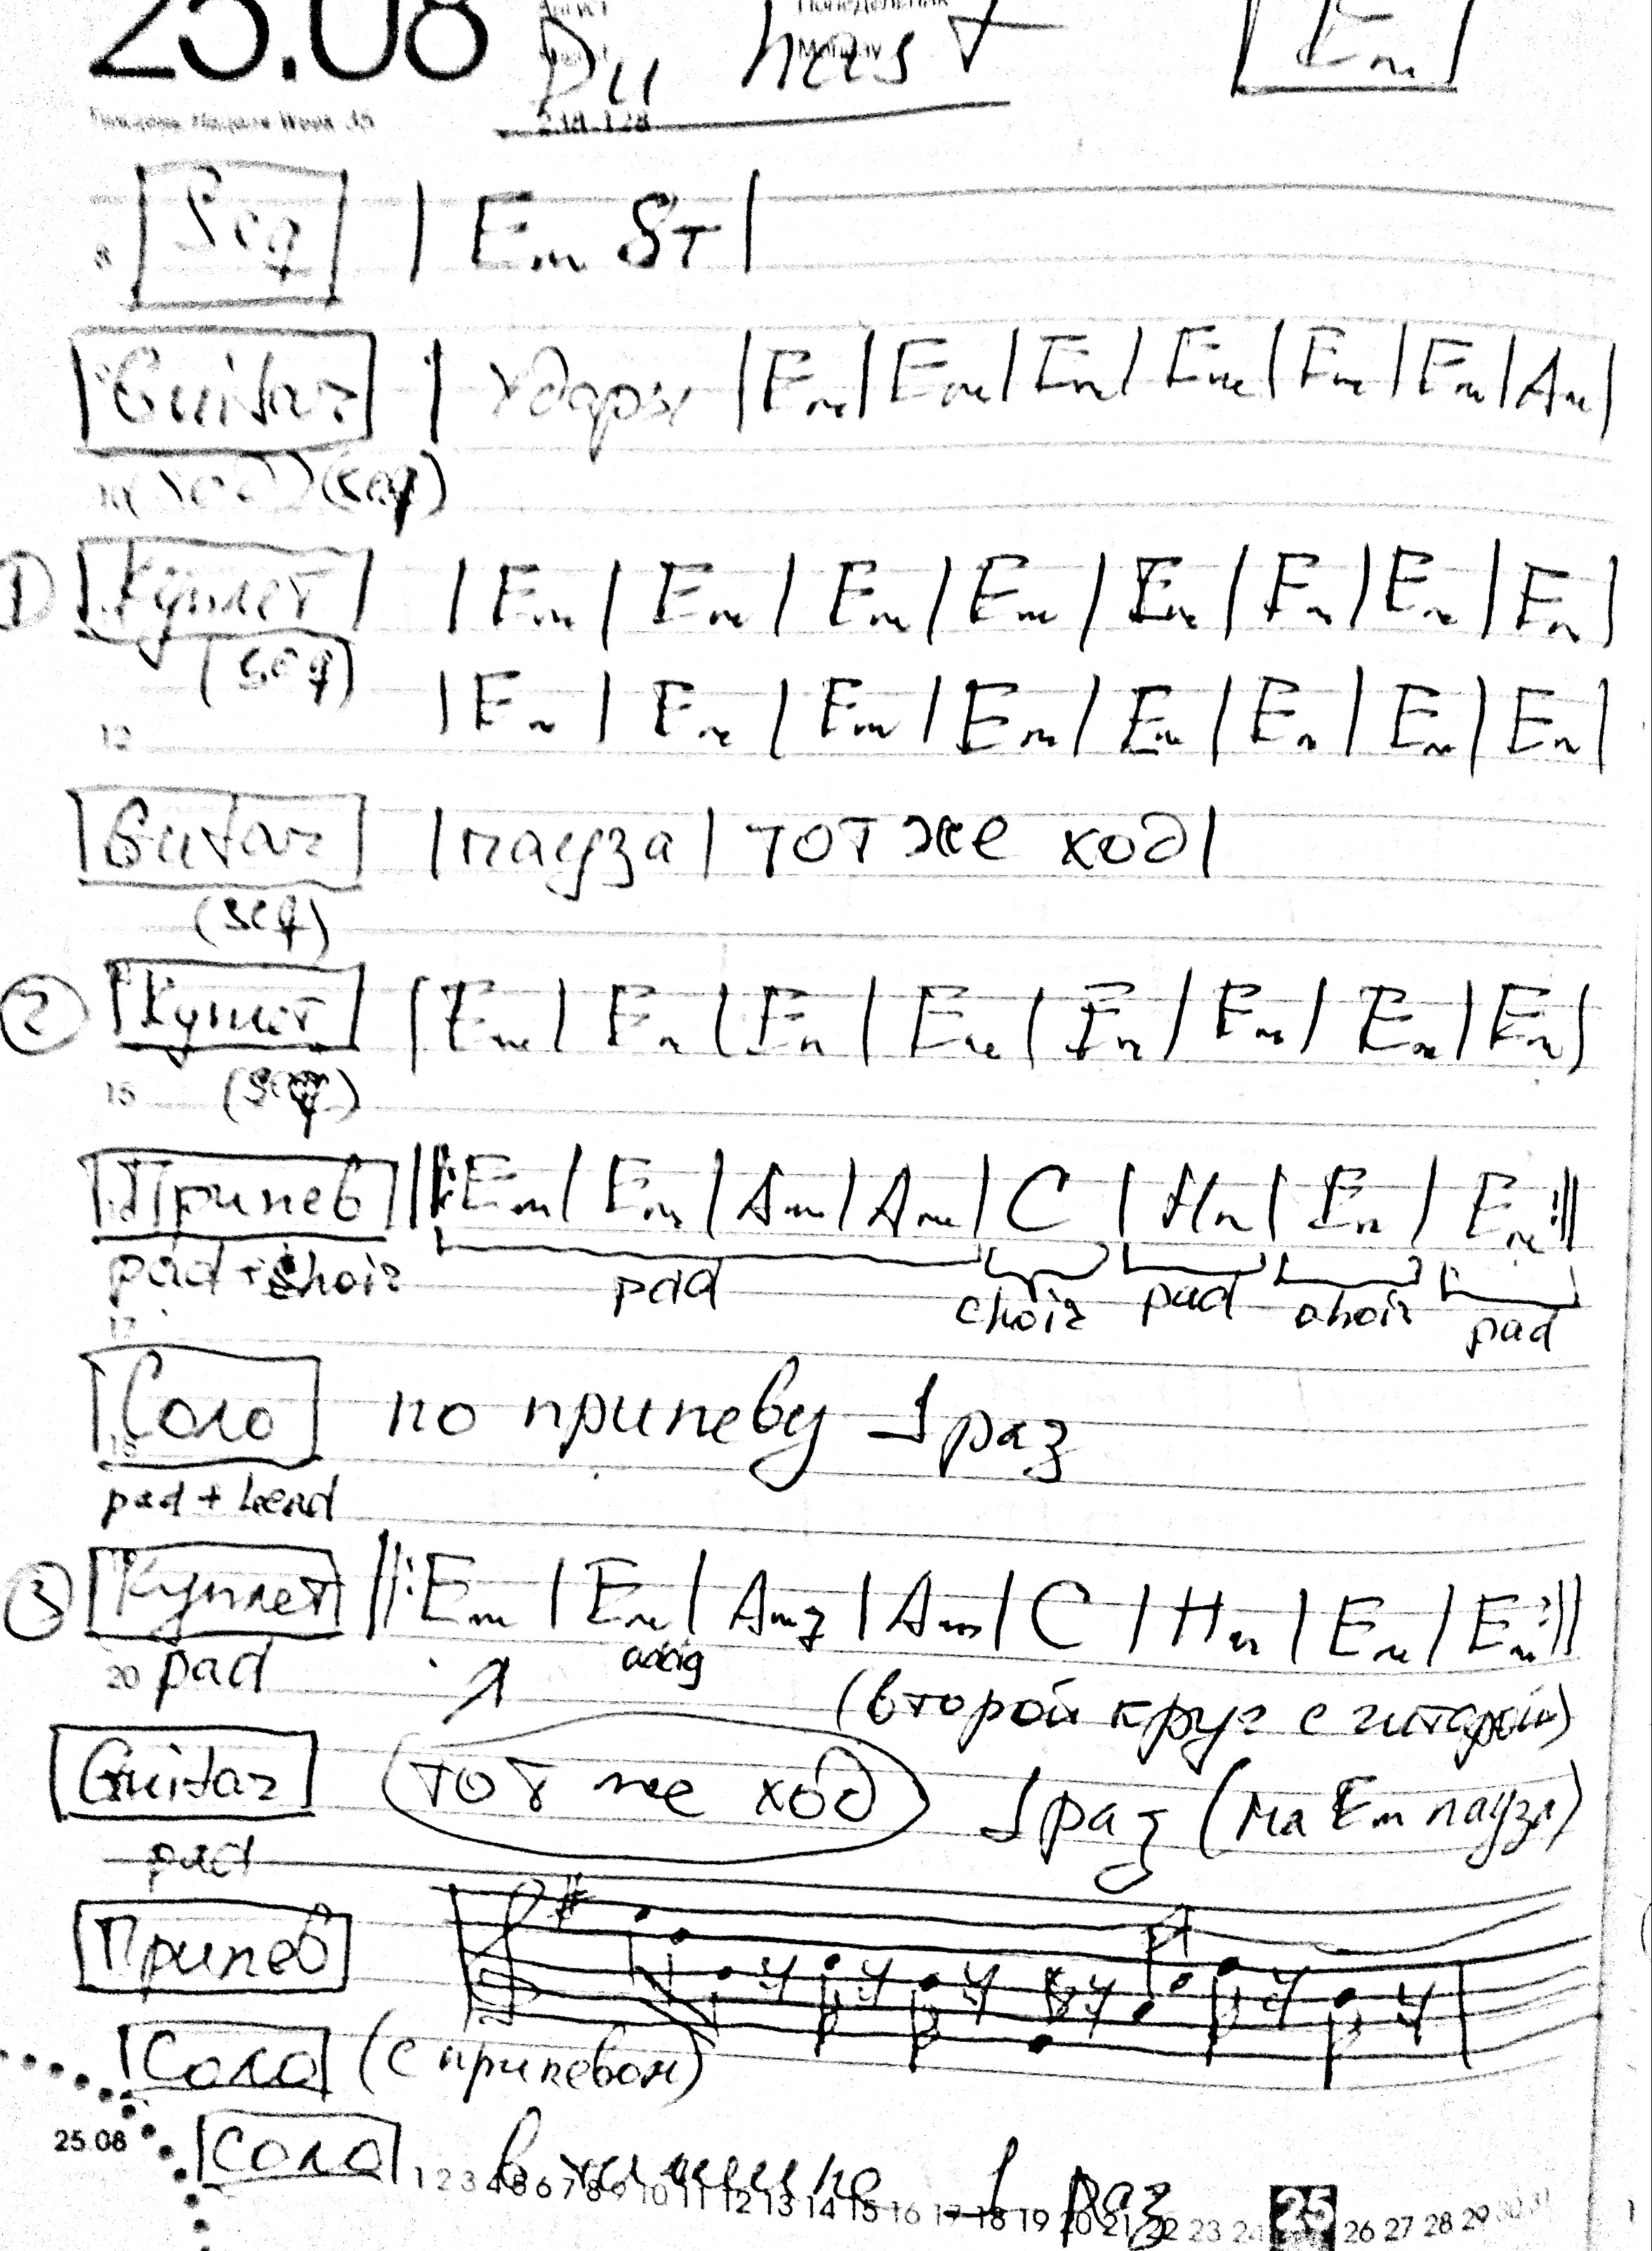 25.08
Du hast
Em
Seq | Em ST |
Guitar | удары | Em | Em | Em | Em | Em | Em | Am |
(seq)
1 Куплет | Em | Em | Em | Em | Em | Em | Em | Em |
(seq)
| Em | Em | Em | Em | Em | Em | Em | Em |
12
Guitar | пауза | тот же ход |
(seq)
2 Куплет | Em | Em | Em | Em | Em | Em | Em | Em |
15 (seq)
Припев ||: Em | Em | Am | Am | C | Hm | Em | Em :||
pad + choir pad choir pad choir pad
17
Соло по припеву 1 раз
18
pad + Lead
3 Куплет ||: Em | Em | Am7 | Am | C | Hm | Em | Em :||
20 pad (второй круг с гитарой)
Guitar тот же ход 1 раз (на Em пауза)
pad
Припев
Соло (с припевом)
25.08 Соло 1 раз
1 2 3 4 5 6 7 8 9 10 11 12 13 14 15 16 17 18 19 20 21 22 23 24 25 26 27 28 29 30 31